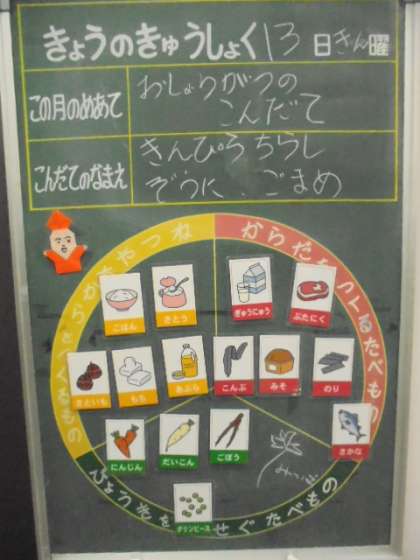 きょうのきゅうしょく 13日きん曜
この月のめあて
おしょうがつの
こんだて
こんだてのなまえ
きんぴらちらし
ぞうに、ごまめ
からだをつくるたべもの
ごはん
さとう
ぎゅうにゅう
ぶたにく
さといも
もち
あぶら
こんぶ
みそ
のり
にんじん
だいこん
ごぼう
みつば
さかな
グリンピース
びょうきをふせぐたべもの